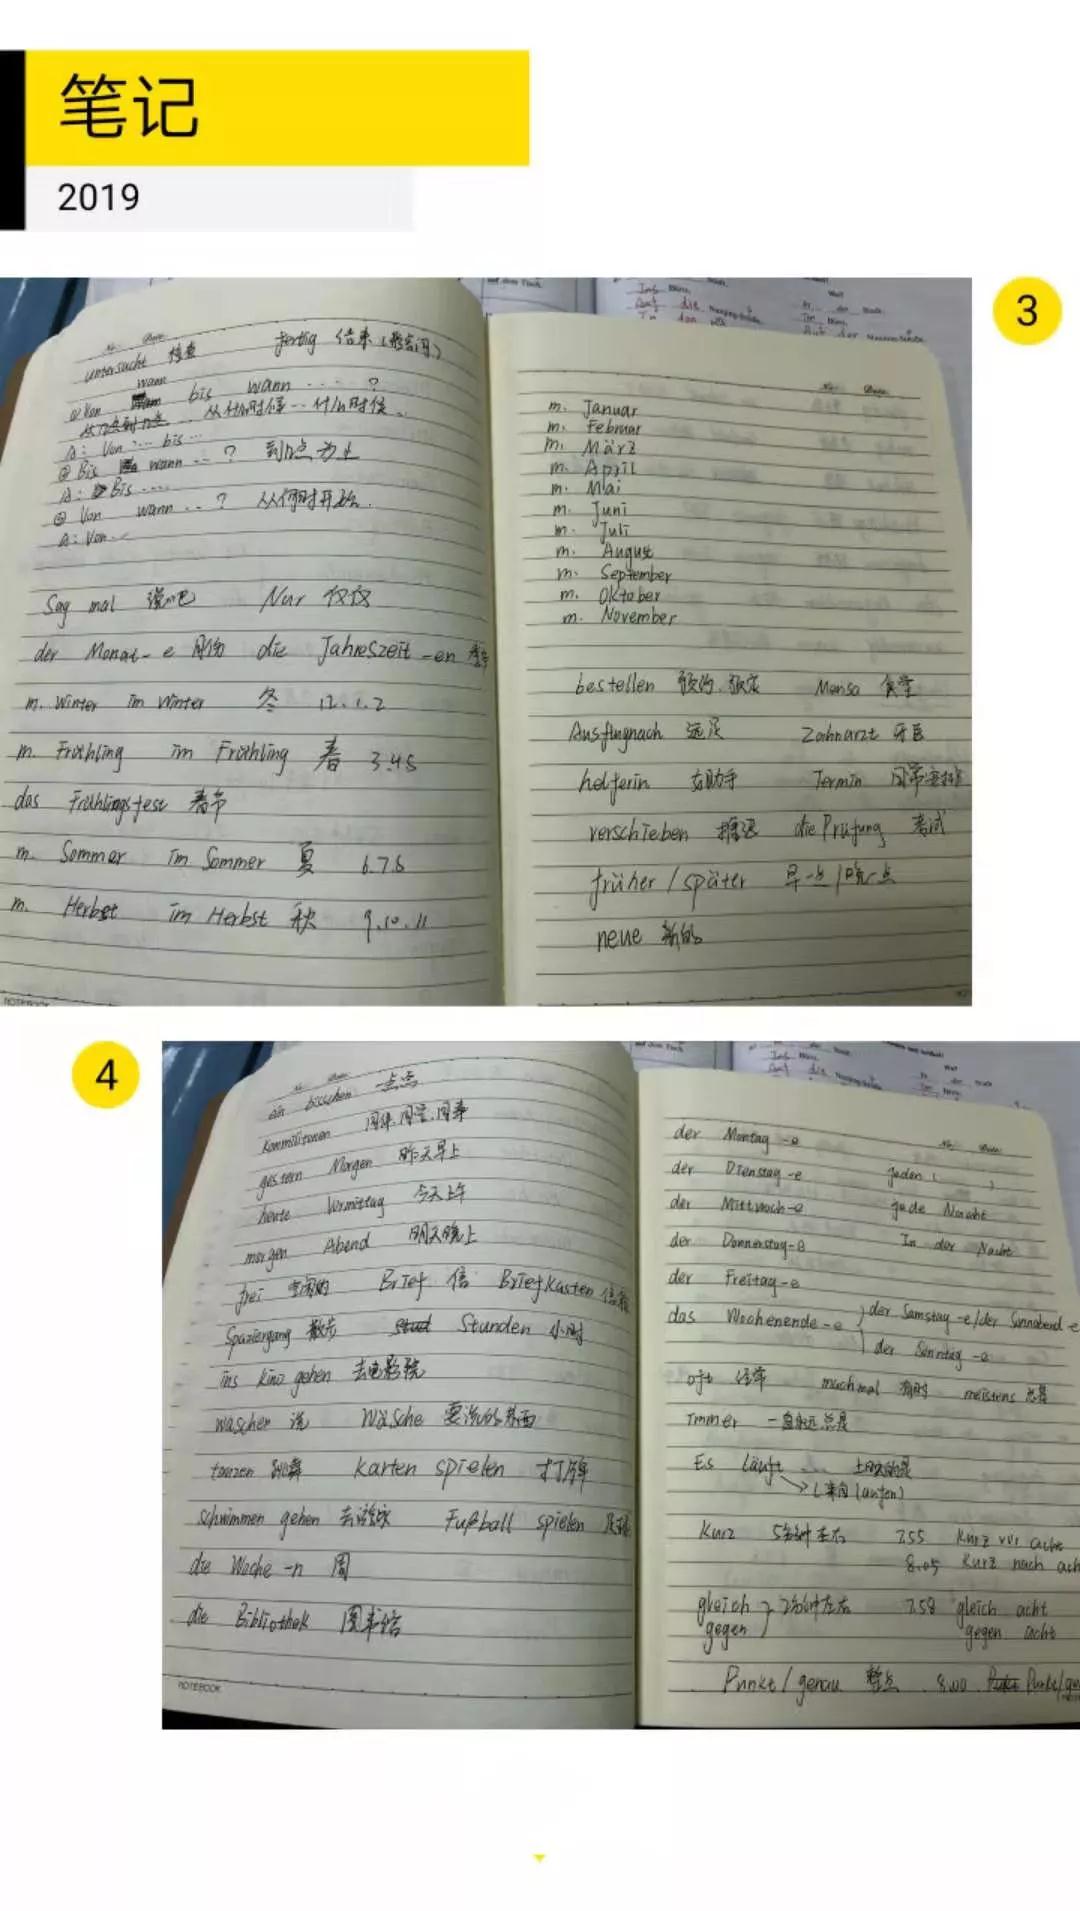 笔记
2019
3
untersucht 检查 fertig 结束(形容词)
wann
① Von bis wann ....?
从什么时候...什么时候.
A: Von ... bis ...
② Bis wann ...? 到几点为止
A: Bis ....
③ Von wann ...? 从何时开始.
A: Von ...
Sag mal 说吧 Nur 仅仅
der Monat-e 月份 die Jahreszeit -en 季节
m. Winter im Winter 冬 12.1.2
m. Frühling im Frühling 春 3.4.5
das Frühlingsfest 春节
m. Sommer im Sommer 夏 6.7.8
m. Herbst im Herbst 秋 9.10.11
m. Januar
m. Februar
m. März
m. April
m. Mai
m. Juni
m. Juli
m. August
m. September
m. Oktober
m. November
bestellen 预约.预定 Mensa 食堂
Ausflugnach 远足 Zahnarzt 牙医
helferin 女助手 Termin 日常安排
verschieben 推迟 die Prüfung 考试
früher / später 早一点/晚一点
neue 新的
4
ein bisschen 一点点
Kommilitonen 同学.同事
gestern Morgen 昨天早上
heute Vormittag 今天上午
morgen Abend 明天晚上
frei 空闲的 Brief 信 Briefkasten 信箱
Spaziergang 散步 Stunden 小时
ins kino gehen 去电影院
waschen 洗 Wäsche 要洗的东西
tanzen 跳舞 Karten spielen 打牌
schwimmen gehen 去游泳 Fußball spielen
die Woche -n 周
die Bibliothek 图书馆
NOTEBOOK
der Montag -e
der Dienstag -e jeden ( )
der Mittwoch -e jede Nacht
der Donnerstag -e In der Nacht
der Freitag -e
das Wochenende -e der Samstag -e/der Sonnabend -e
der Sonntag -e
oft 经常 machmal 有时 meistens 总是
Immer 一直永远总是
Es läuft ...
Kurz 5分钟左右 7.55 Kurz vor acht
8.05 Kurz nach ach
gleich 2分钟左右 7.58 gleich acht
gegen gegen acht
Punkt / genau 整点 8.00 Punkt/